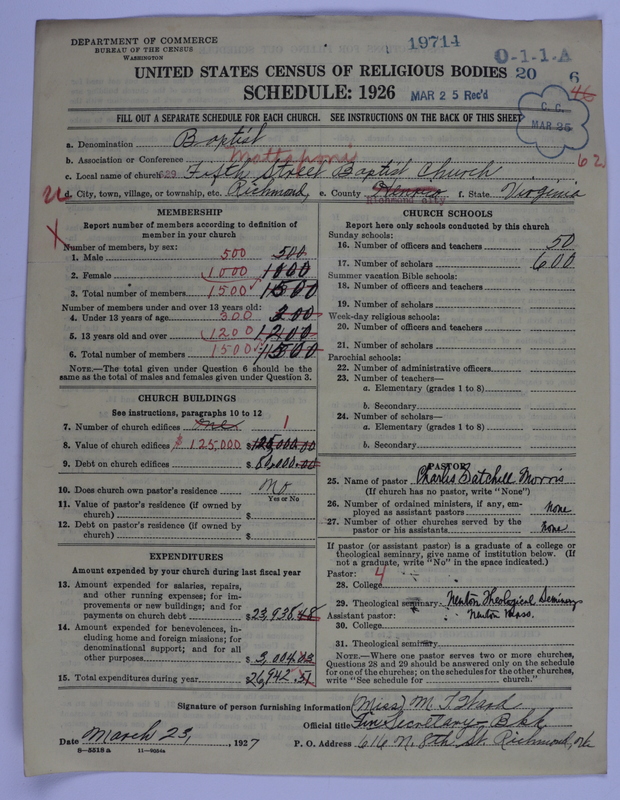 DEPARTMENT OF COMMERCE
BUREAU OF THE CENSUS
WASHINGTON
19714
O-1-1-A
UNITED STATES CENSUS OF RELIGIOUS BODIES 20 6
SCHEDULE: 1926
MAR 25 Rec'd
46
C. C.
MAR 25
FILL OUT A SEPARATE SCHEDULE FOR EACH CHURCH. SEE INSTRUCTIONS ON THE BACK OF THIS SHEET
a. Denomination Baptist
b. Association or Conference Mattaponi
62
c. Local name of church 529 Fifth Street Baptist Church
d. City, town, village, or township, etc. Richmond, e. County Henrico f. State Virginia
Richmond City
MEMBERSHIP
Report number of members according to definition of
member in your church
Number of members, by sex:
1. Male 500 500
2. Female 1000 1000
3. Total number of members 1500 1500
Number of members under and over 13 years old:
4. Under 13 years of age 300 300
5. 13 years old and over 1200 1200
6. Total number of members 1500 1500
NOTE.—The total given under Question 6 should be
same as the total of males and females given under Question 3.
CHURCH BUILDINGS
See instructions, paragraphs 10 to 12
7. Number of church edifices one 1
8. Value of church edifices $125,000 $125,000.00
9. Debt on church edifices $60,000.00
10. Does church own pastor's residence No
Yes or No
11. Value of pastor's residence (if owned by
church) $
12. Debt on pastor's residence (if owned by
church) $
EXPENDITURES
Amount expended by your church during last fiscal year
13. Amount expended for salaries, repairs,
and other running expenses; for im-
provements or new buildings; and for
payments on church debt $23,938.48
14. Amount expended for benevolences, in-
cluding home and foreign missions; for
denominational support; and for all
other purposes $3,004.03
15. Total expenditures during year 26,942.51
CHURCH SCHOOLS
Report here only schools conducted by this church
Sunday schools:
16. Number of officers and teachers 50
17. Number of scholars 600
Summer vacation Bible schools:
18. Number of officers and teachers
19. Number of scholars
Week-day religious schools:
20. Number of officers and teachers
21. Number of scholars
Parochial schools:
22. Number of administrative officers
23. Number of teachers—
a. Elementary (grades 1 to 8)
b. Secondary
24. Number of scholars—
a. Elementary (grades 1 to 8)
b. Secondary
PASTOR
25. Name of pastor Charles Satchell Morris
(If church has no pastor, write "None")
26. Number of ordained ministers, if any, em-
ployed as assistant pastors None
27. Number of other churches served by the
pastor or his assistants None
If pastor (or assistant pastor) is a graduate of a college or
theological seminary, give name of institution below. (If
not a graduate, write "No" in the space indicated.)
Pastor: 4
28. College
29. Theological seminary Newton Theological Seminary
Assistant pastor: Newton Mass.
30. College
31. Theological seminary
NOTE.—Where one pastor serves two or more churches,
Questions 28 and 29 should be answered only on the schedule
for one of the churches; on the schedules for the other churches,
write "See schedule for church."
Signature of person furnishing information (Miss) M. T. Ward
Official title Fin Secretary - Bkk
Date March 23, 1927 P. O. Address 616 N. 8th St. Richmond, Va
8—5518a 11—9654a